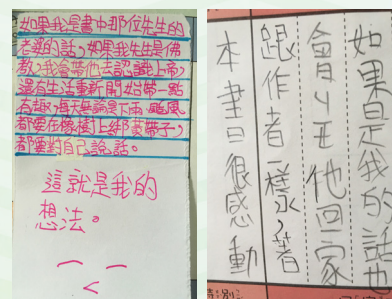 如果我是書中那位先生的
老婆的話,如果我先生是佛
教,我會帶他去認識上帝,
還有生活重新開始帶一點
有趣,每天無論是下雨、颱風
都要在橡樹上綁黃帶子,
都要對自己說話。
這就是我的
想法。
如果是我的話也
會ㄐㄧㄝ他回家
跟作者一樣,看
本書曰很感動